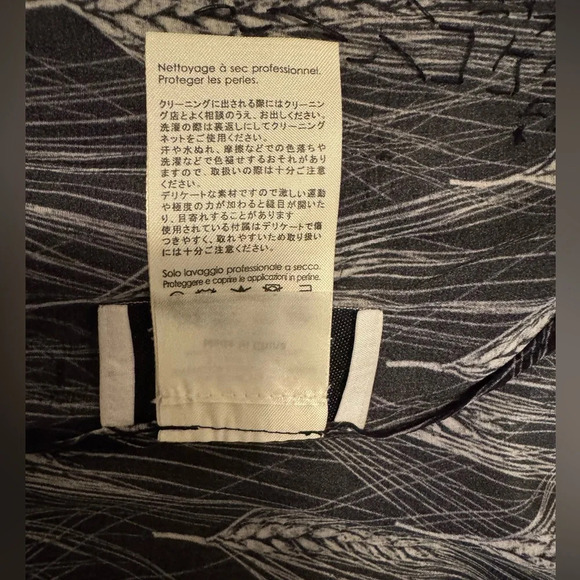 Nettoyage à sec professionnel.
Proteger les perles.
クリーニングに出される際にはクリーニン
グ店とよく相談のうえ、お出しください。
洗濯の際は裏返しにしてクリーニング
ネットをご使用ください。
汗や水ぬれ、摩擦などでの色落ちや
洗濯などで色褪せするおそれがあり
ますので、取扱いの際は十分ご注意
ください。
デリケートな素材ですので激しい運動
や極度の力が加わると縫目が開いた
り、目寄れすることがあります
使用されている付属はデリケートで傷
つきやすく、取れやすいため取り扱い
には十分ご注意ください。
Solo lavaggio professionale a secco.
Proteggere e coprire le applicazioni in perline.
Made in China